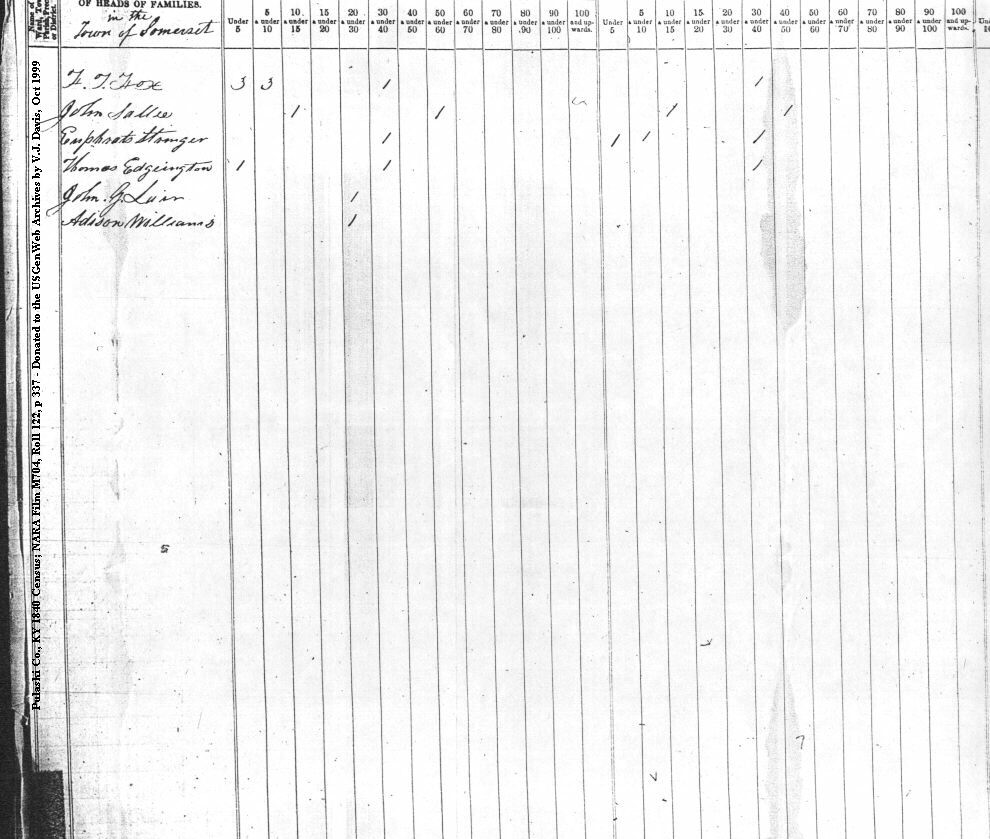 OF HEADS OF FAMILIES.
in the
Town of Somerset
Under 5
5 & under 10
10 & under 15
15 & under 20
20 & under 30
30 & under 40
40 & under 50
50 & under 60
60 & under 70
70 & under 80
80 & under 90
90 & under 100
100 and upwards.
Under 5
5 & under 10
10 & under 15
15 & under 20
20 & under 30
30 & under 40
40 & under 50
50 & under 60
60 & under 70
70 & under 80
80 & under 90
90 & under 100
100 and upwards.
F. T. Fox 3 3 1 1
John Sallee 1 1 1 1
Euphrats Stringer 1 1 1 1
Thomas Edgeington 1 1 1
John. G. 1
Adison Williams 1
Pulaski Co., KY 1840 Census; NARA Film M704, Roll 122, p 337 - Donated to the USGenWeb Archives by V.J. Davis, Oct 1999